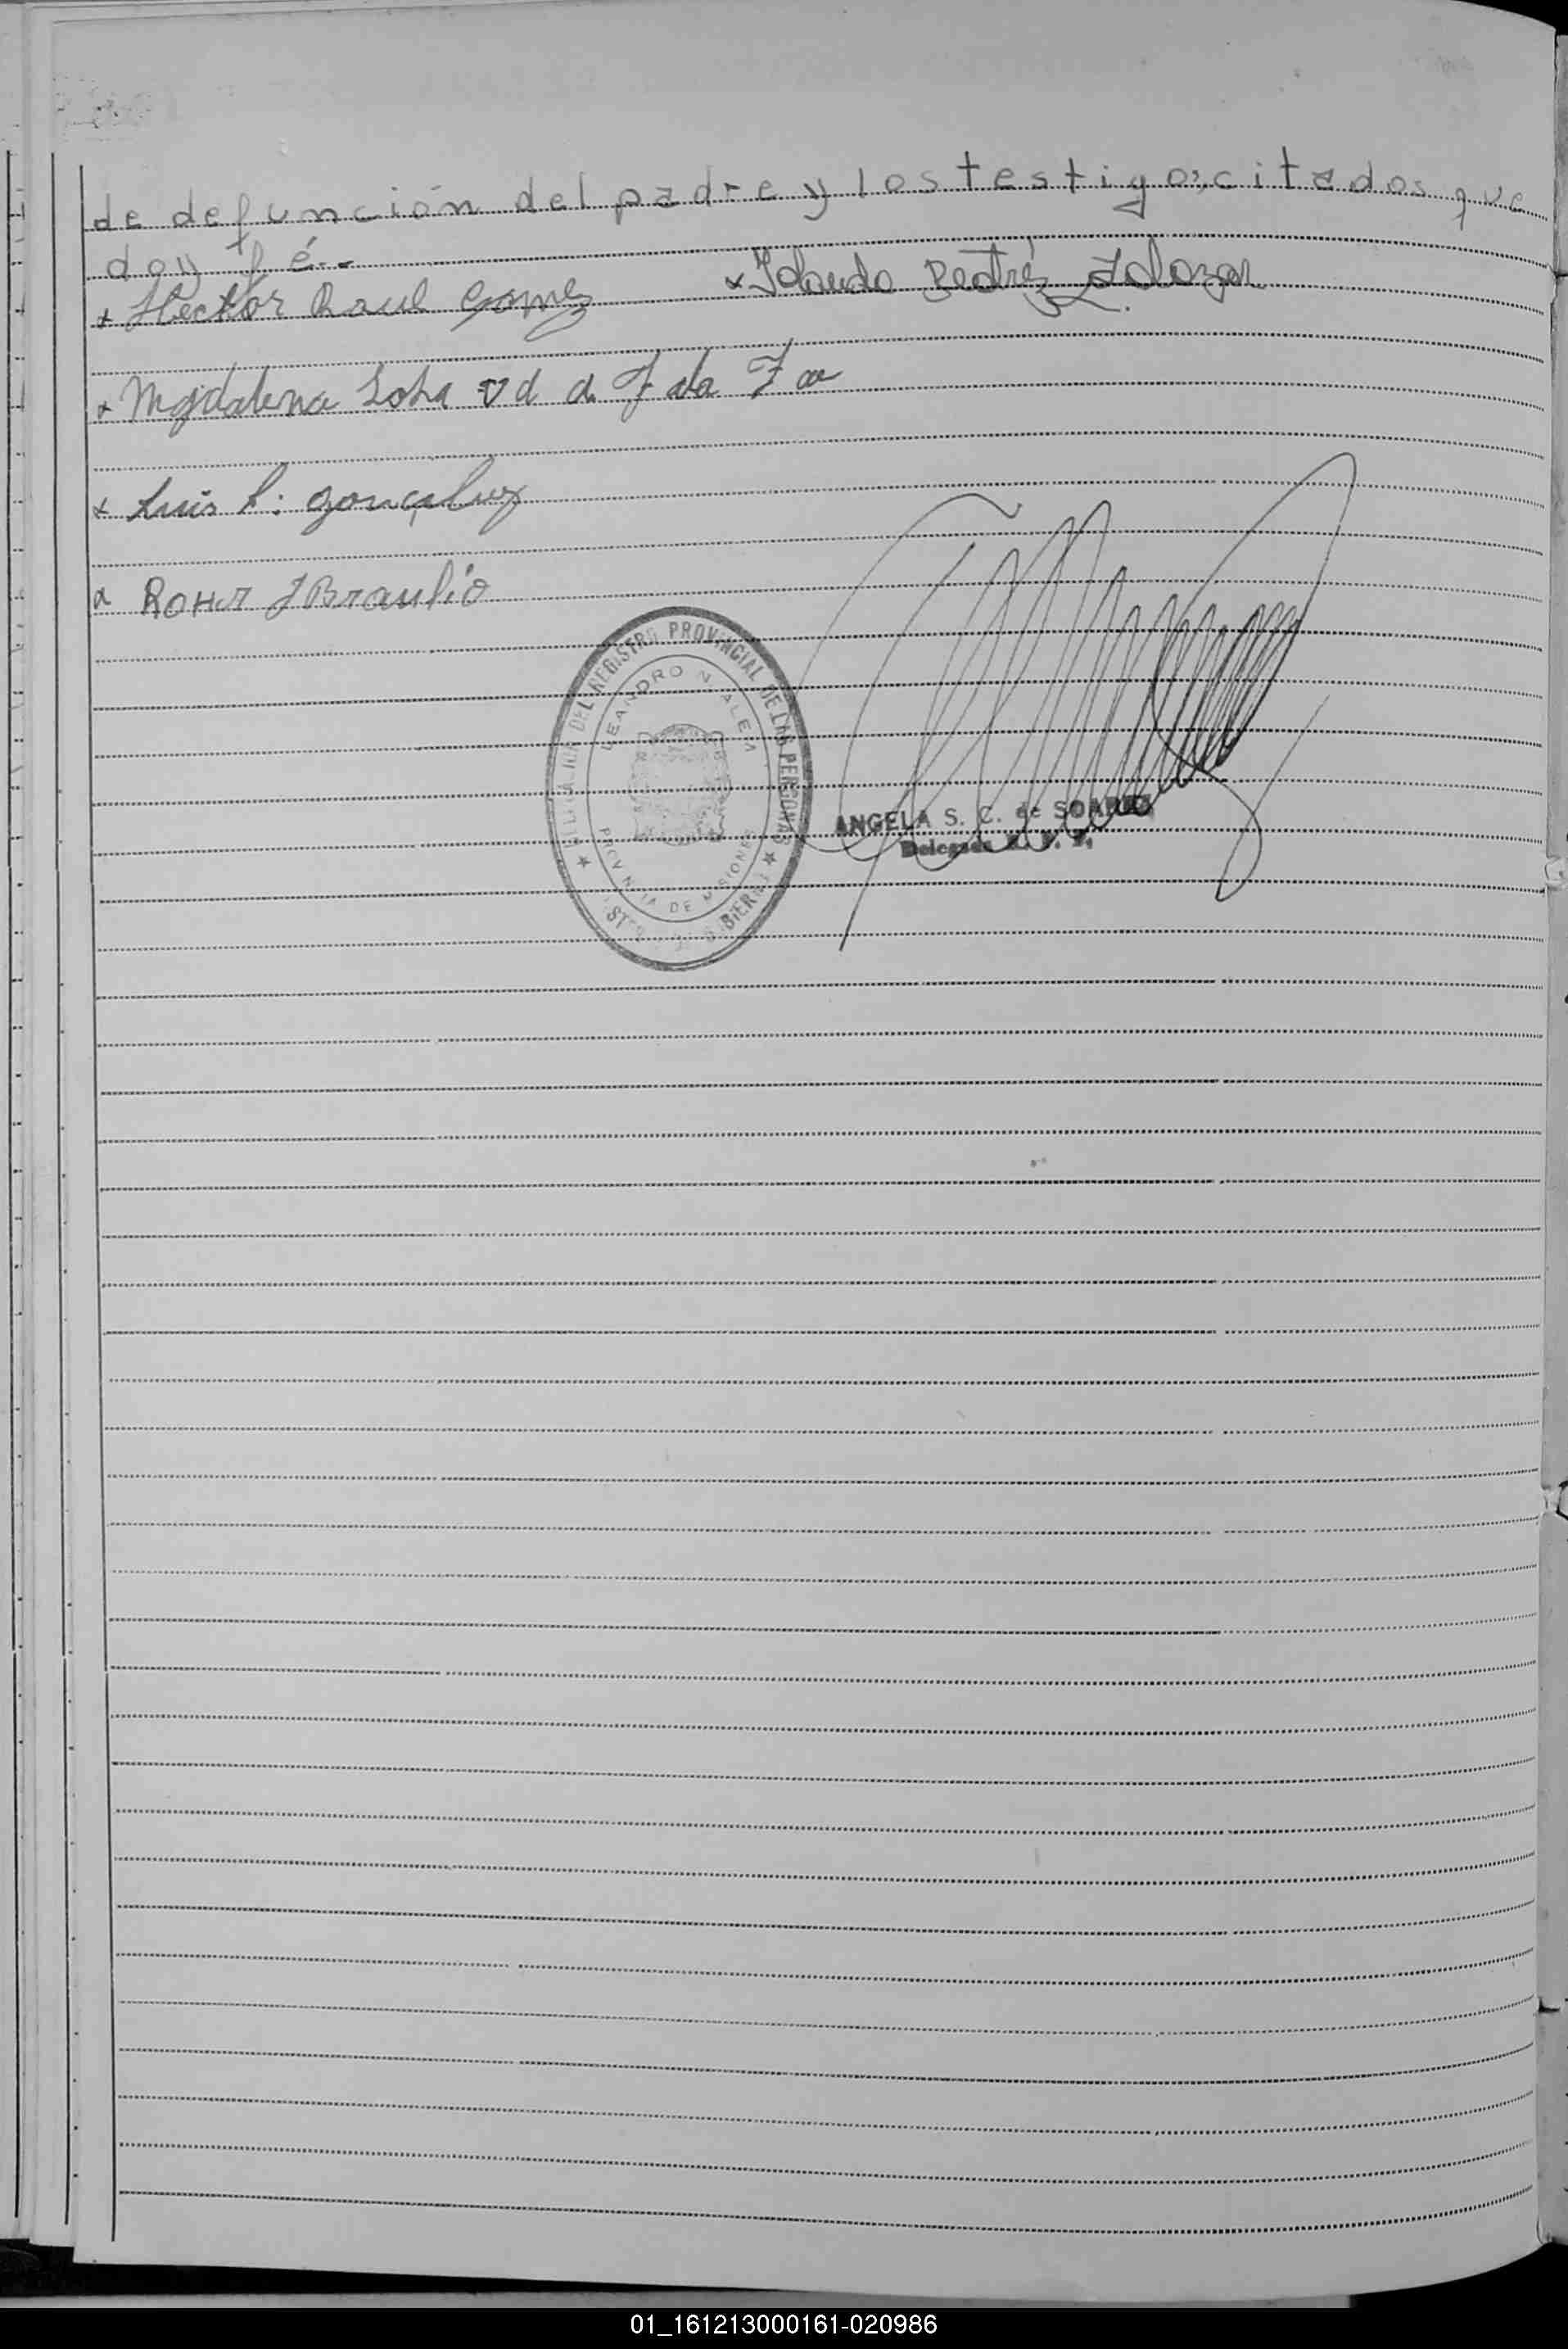 de defunción del padre y los testigos citados que
doy fé.-
x Hector Raul Gomez x Iolanda Beatriz Zalazar
x Magdalena Soha vd d. F da
x Luis R. gonçalvez
x Rohr J Braulio
DEL REGISTRO PROVINCIAL DE LAS PERSONAS
LEANDRO N. ALEM
PROVINCIA DE MISIONES
ANGELA S. C. de SOAREZ
Delegada R. P. P.
01_161213000161-020986